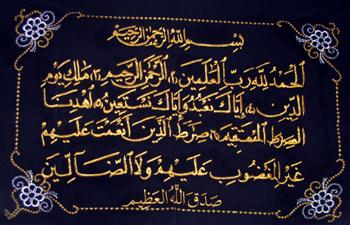 بسم الله الرحمن الرحيم
الحمد لله رب العلمين ١ الرحمن الرحيم ٣ ملك يوم
الدين إياك نعبد وإياك نستعين ٥ اهدنا
الصرط المستقيم ٦ صرط الذين أنعمت عليهم
غير المغضوب عليهم ولا الضالين
صدق الله العظيم